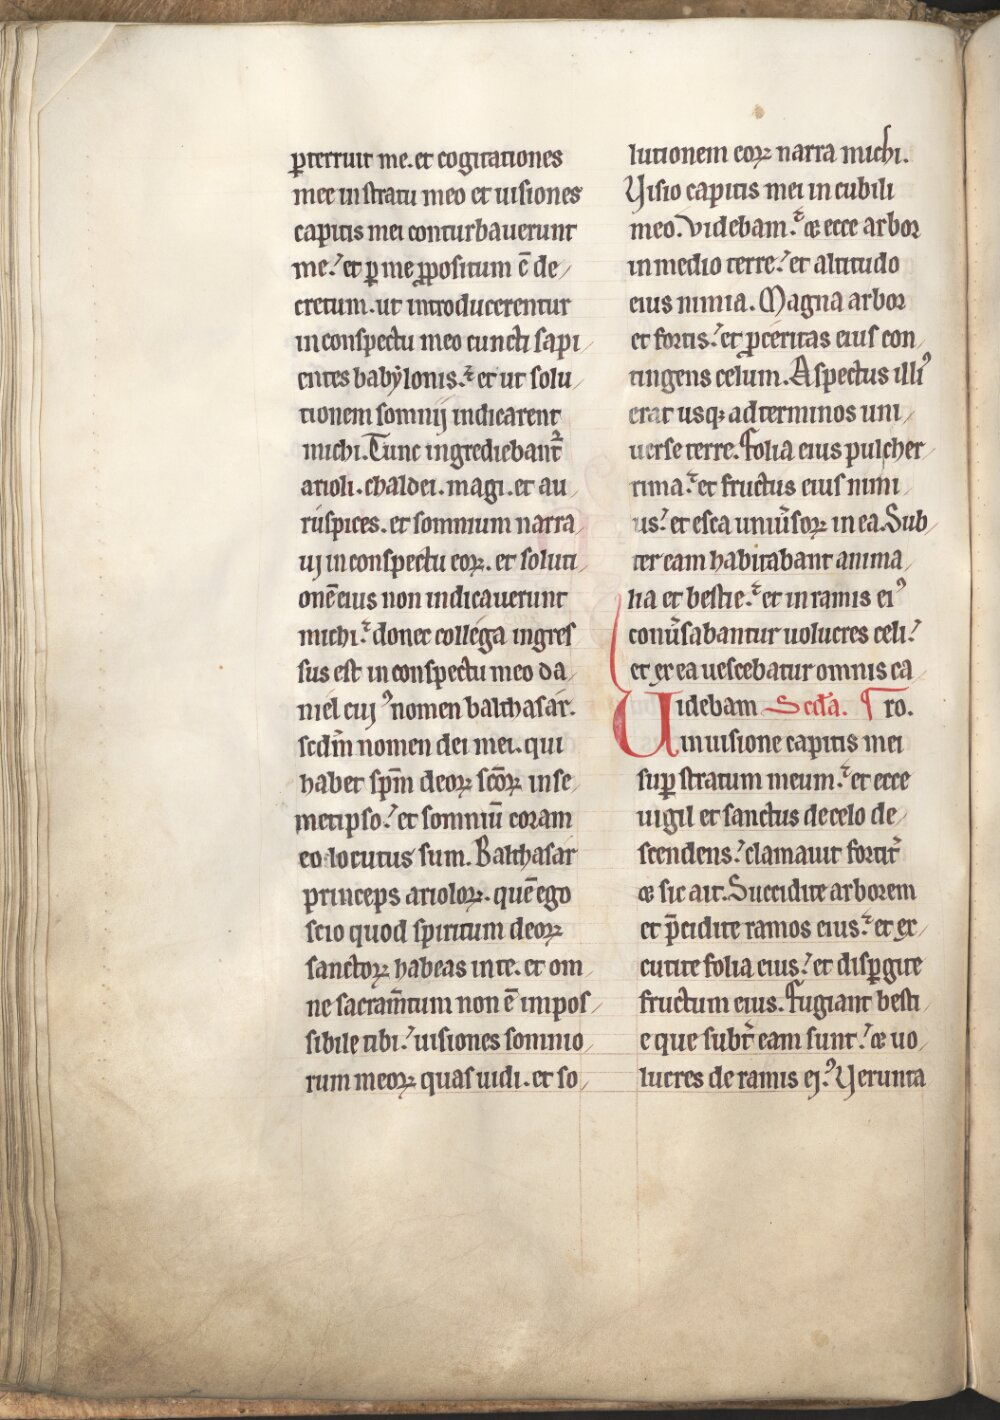 ꝑterruit me. et cogitationes
mee in stratu meo et uisiones
capitis mei conturbauerunt
me. et ꝑ me ꝓpositum ē de
cretum. ut introducerentur
in conspectu meo cuncti sapi
entes babẏlonis. et ut solu
tionem somnij indicarent
michi. Tunc ingrediebant᷑
arioli. chaldei. magi. et au
ruspices. et somnium narra
uj in conspectu eoꝝ. et soluti
onē eius non indicauerunt
michi. donec collega ingres
sus est in conspectu meo da
niel cuiꝰ nomen balthasar.
scdm̄ nomen dei mei. qui
habet sp̄m deoꝝ sc̄oꝝ in se
metipso. et somniū coram
eo locutus sum. Balthasar
princeps arioloꝝ. quē ego
scio quod spiritum deoꝝ
sanctoꝝ habeas in te. et om
ne sacram̄tum non ē impos
sibile tibi. uisiones somnio
rum meoꝝ quas uidi. et so
lutionem eoꝝ narra michi.
Visio capitis mei in cubili
meo. Videbam. et ecce arbor
in medio terre. et altitudo
eius nimia. Magna arbor
et fortis. et ꝓceritas eius con
tingens celum. Aspectus illiꝰ
erat usqꝫ ad terminos uni
uerse terre. Folia eius pulcher
rima. et fructus eius nimi
us. et esca uniu̾soꝝ in ea. Sub
ter eam habitabant anima
lia et bestie. et in ramis eiꝰ
conu̾sabantur uolucres celi.
et ex ea uescebatur omnis ca
Uidebam Scd̄a. ¶ ro.
in uisione capitis mei
suꝑ stratum meum. et ecce
uigil et sanctus de celo de
scendens. clamauit fortit᷑
et sic ait. Succidite arborem
et p̄cidite ramos eius. et ex
cutite folia eius. et disꝑgite
fructum eius. Fugiant besti
e que subt᷑ eam sunt. et uo
lucres de ramis ejꝰ. Verunta